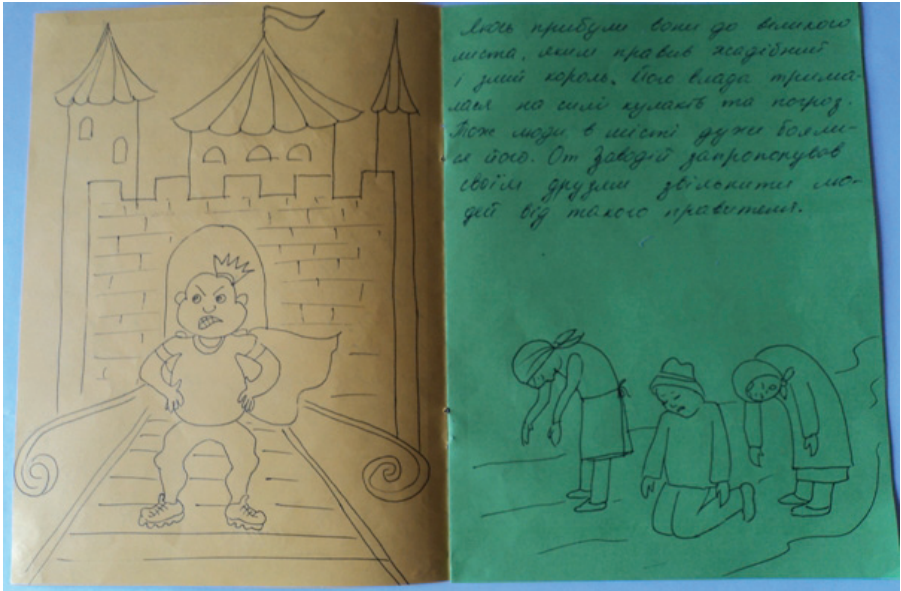 Якось прибули вони до великого
міста, яким правив жадібний
і злий король. Його влада трима-
лася на силі кулаків та погроз.
Тож люди в місті дуже бояли-
ся його. От Заводій запропонував
своїм друзям звільнити лю-
дей від такого правителя.